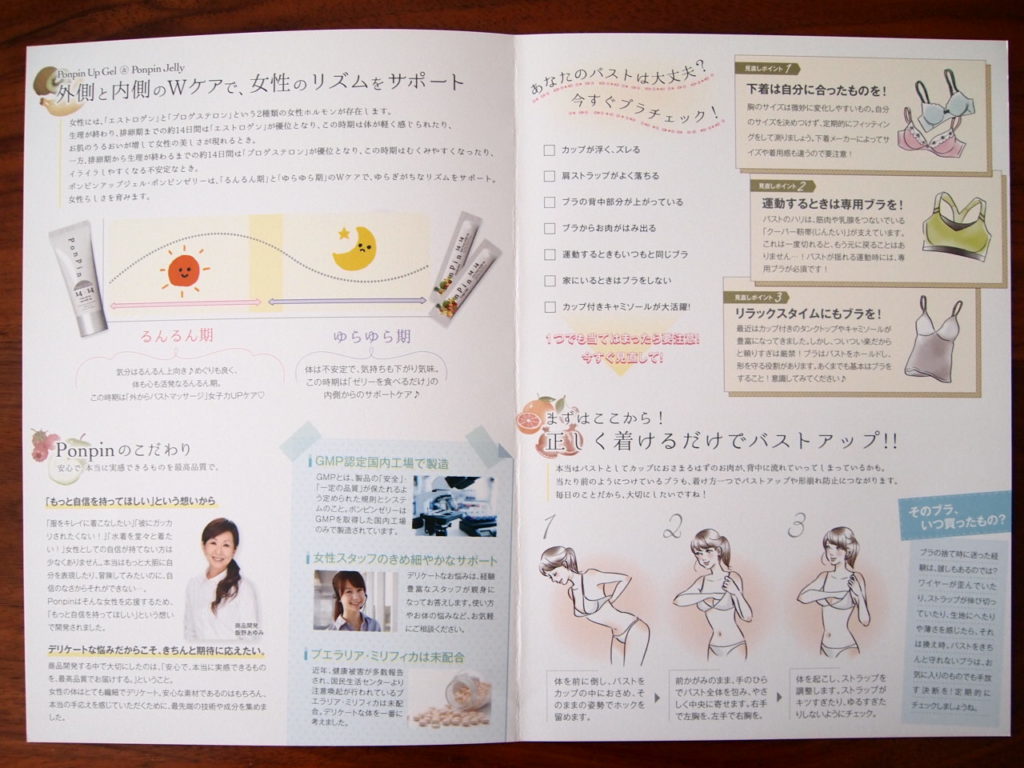 Ponpin Up Gel & Ponpin Jelly
外側と内側のWケアで、女性のリズムをサポート
女性には、「エストロゲン」と「プロゲステロン」という2種類の女性ホルモンが存在します。
生理が終わり、排卵期までの約14日間は「エストロゲン」が優位となり、この時期は体が軽く感じられたり、
お肌のうるおいが増して女性の美しさが現れるとき。
一方、排卵期から生理が終わるまでの約14日間は「プロゲステロン」が優位となり、この時期はむくみやすくなったり、
イライラしやすくなる不安定なとき。
ポンピンアップジェル・ポンピンゼリーは、「るんるん期」と「ゆらゆら期」のWケアで、ゆらぎがちなリズムをサポート。
女性らしさを育みます。
PonPin
るんるん期
気分はるんるん上向き♪めぐりも良く、
体も心も活発なるんるん期。
この時期は「外からバストマッサージ」女子力UPケア♡
ゆらゆら期
体は不安定で、気持ちも下がり気味。
この時期は「ゼリーを食べるだけ」の
内側からのサポートケア♪
Ponpinのこだわり
安心で、本当に実感できるものを最高品質で。
「もっと自信を持ってほしい」という想いから
「服をキレイに着こなしたい」「彼にガッカ
リされたくない!」「水着を堂々と着た
い!」女性としての自信が持てない方は
少なくありません。本当はもっと大胆に自
分を表現したり、冒険してみたいのに、自
信のなさからそれができない…。
Ponpinはそんな女性を応援するため、
「もっと自信を持ってほしい」という想い
で開発されました。
商品開発
飯野あゆみ
デリケートな悩みだからこそ、きちんと期待に応えたい。
商品開発する中で大切にしたのは、「安心で、本当に実感できるもの
を、最高品質でお届けする。」ということ。
女性の体はとても繊細でデリケート。安心な素材であるのはもちろん、
本当の手応えを感じていただくために、最先端の技術や成分を集めま
した。
GMP認定国内工場で製造
GMPとは、製品の「安全」・
「一定の品質」が保たれるよ
う定められた規則とシステ
ムのこと。ポンピンゼリーは
GMPを取得した国内工場
のみで製造されています。
女性スタッフのきめ細やかなサポート
デリケートなお悩みは、経験
豊富なスタッフが親身に
なってお答えします。使い方
やお体の悩みなど、お気軽
にご相談ください。
プエラリア・ミリフィカは未配合
近年、健康被害が多数報告
され、国民生活センターより
注意喚起が行われているプ
エラリア・ミリフィカは未配
合。デリケートな体を一番に
考えました。
あなたのバストは大丈夫?
今すぐブラチェック!
カップが浮く、ズレる
肩ストラップがよく落ちる
ブラの背中部分が上がっている
ブラからお肉がはみ出る
運動するときもいつもと同じブラ
家にいるときはブラをしない
カップ付きキャミソールが大活躍!
1つでも当てはまったら要注意!
今すぐ見直して!
見直しポイント1
下着は自分に合ったものを!
胸のサイズは微妙に変化しやすいもの。自分
のサイズを決めつけず、定期的にフィッティン
グをして測りましょう。下着メーカーによってサ
イズや着用感も違うので要注意!
見直しポイント2
運動するときは専用ブラを!
バストのハリは、筋肉や乳腺をつないでいる
「クーパー靭帯(じんたい)」が支えています。
これは一度切れると、もう元に戻ることはあ
りません…!バストが揺れる運動時には、専
用ブラが必須です!
見直しポイント3
リラックスタイムにもブラを!
最近はカップ付きのタンクトップやキャミソールが
豊富になってきました。しかし、ついつい楽だから
と頼りすぎは厳禁!ブラはバストをホールドし、
形を守る役割があります。あくまでも基本はブラを
すること!意識してみてください♪
まずはここから!
正しく着けるだけでバストアップ!!
本当はバストとしてカップにおさまるはずのお肉が、背中に流れていってしまっているかも。
当たり前のようにつけているブラも、着け方一つでバストアップや形崩れ防止につながります。
毎日のことだから、大切にしたいですね!
1
2
3
体を前に倒し、バストを
カップの中におさめ、そ
のままの姿勢でホックを
留めます。
前かがみのまま、手のひら
でバスト全体を包み、やさ
しく中央に寄せます。右手
で左胸を、左手で右胸を。
体を起こし、ストラップを
調整します。ストラップが
キツすぎたり、ゆるすぎた
りしないようにチェック。
そのブラ、
いつ買ったもの?
ブラの捨て時に迷った経
験は、誰しもあるのでは?
ワイヤーが歪んでいた
り、ストラップが伸び切っ
ていたり、生地にへたり
や薄さを感じたら、それ
は換え時。バストをきち
んと守れないブラは、お
気に入りのものでも手放
す決断を!定期的に
チェックしましょうね。